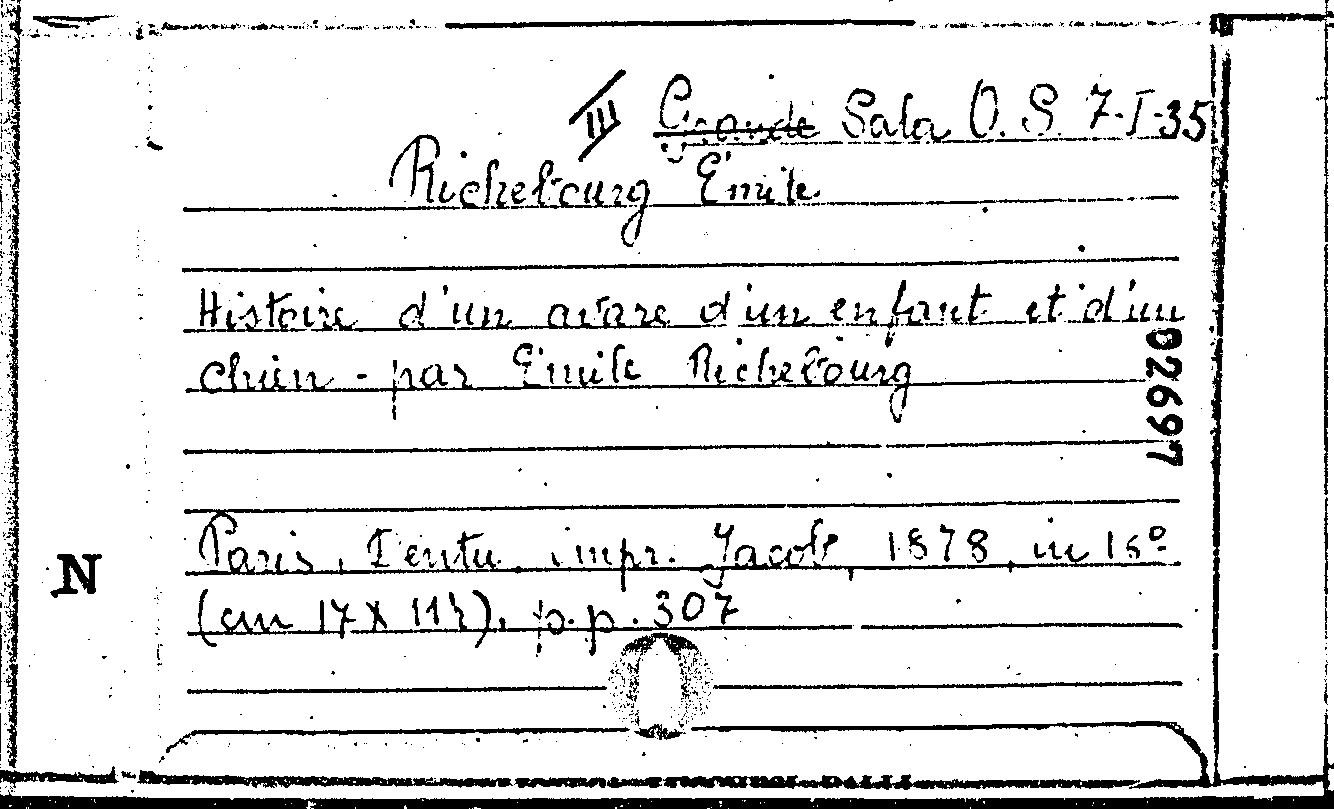 III Grande Sala O. S. 7-I-35
Richebourg Émile
Histoire d'un avare d'un enfant et d'un
chien - par Émile Richebourg
02697
Paris, Dentu, impr. Jacob, 1878, in 16º
N
(cm 17 X 11½), p.p. 307